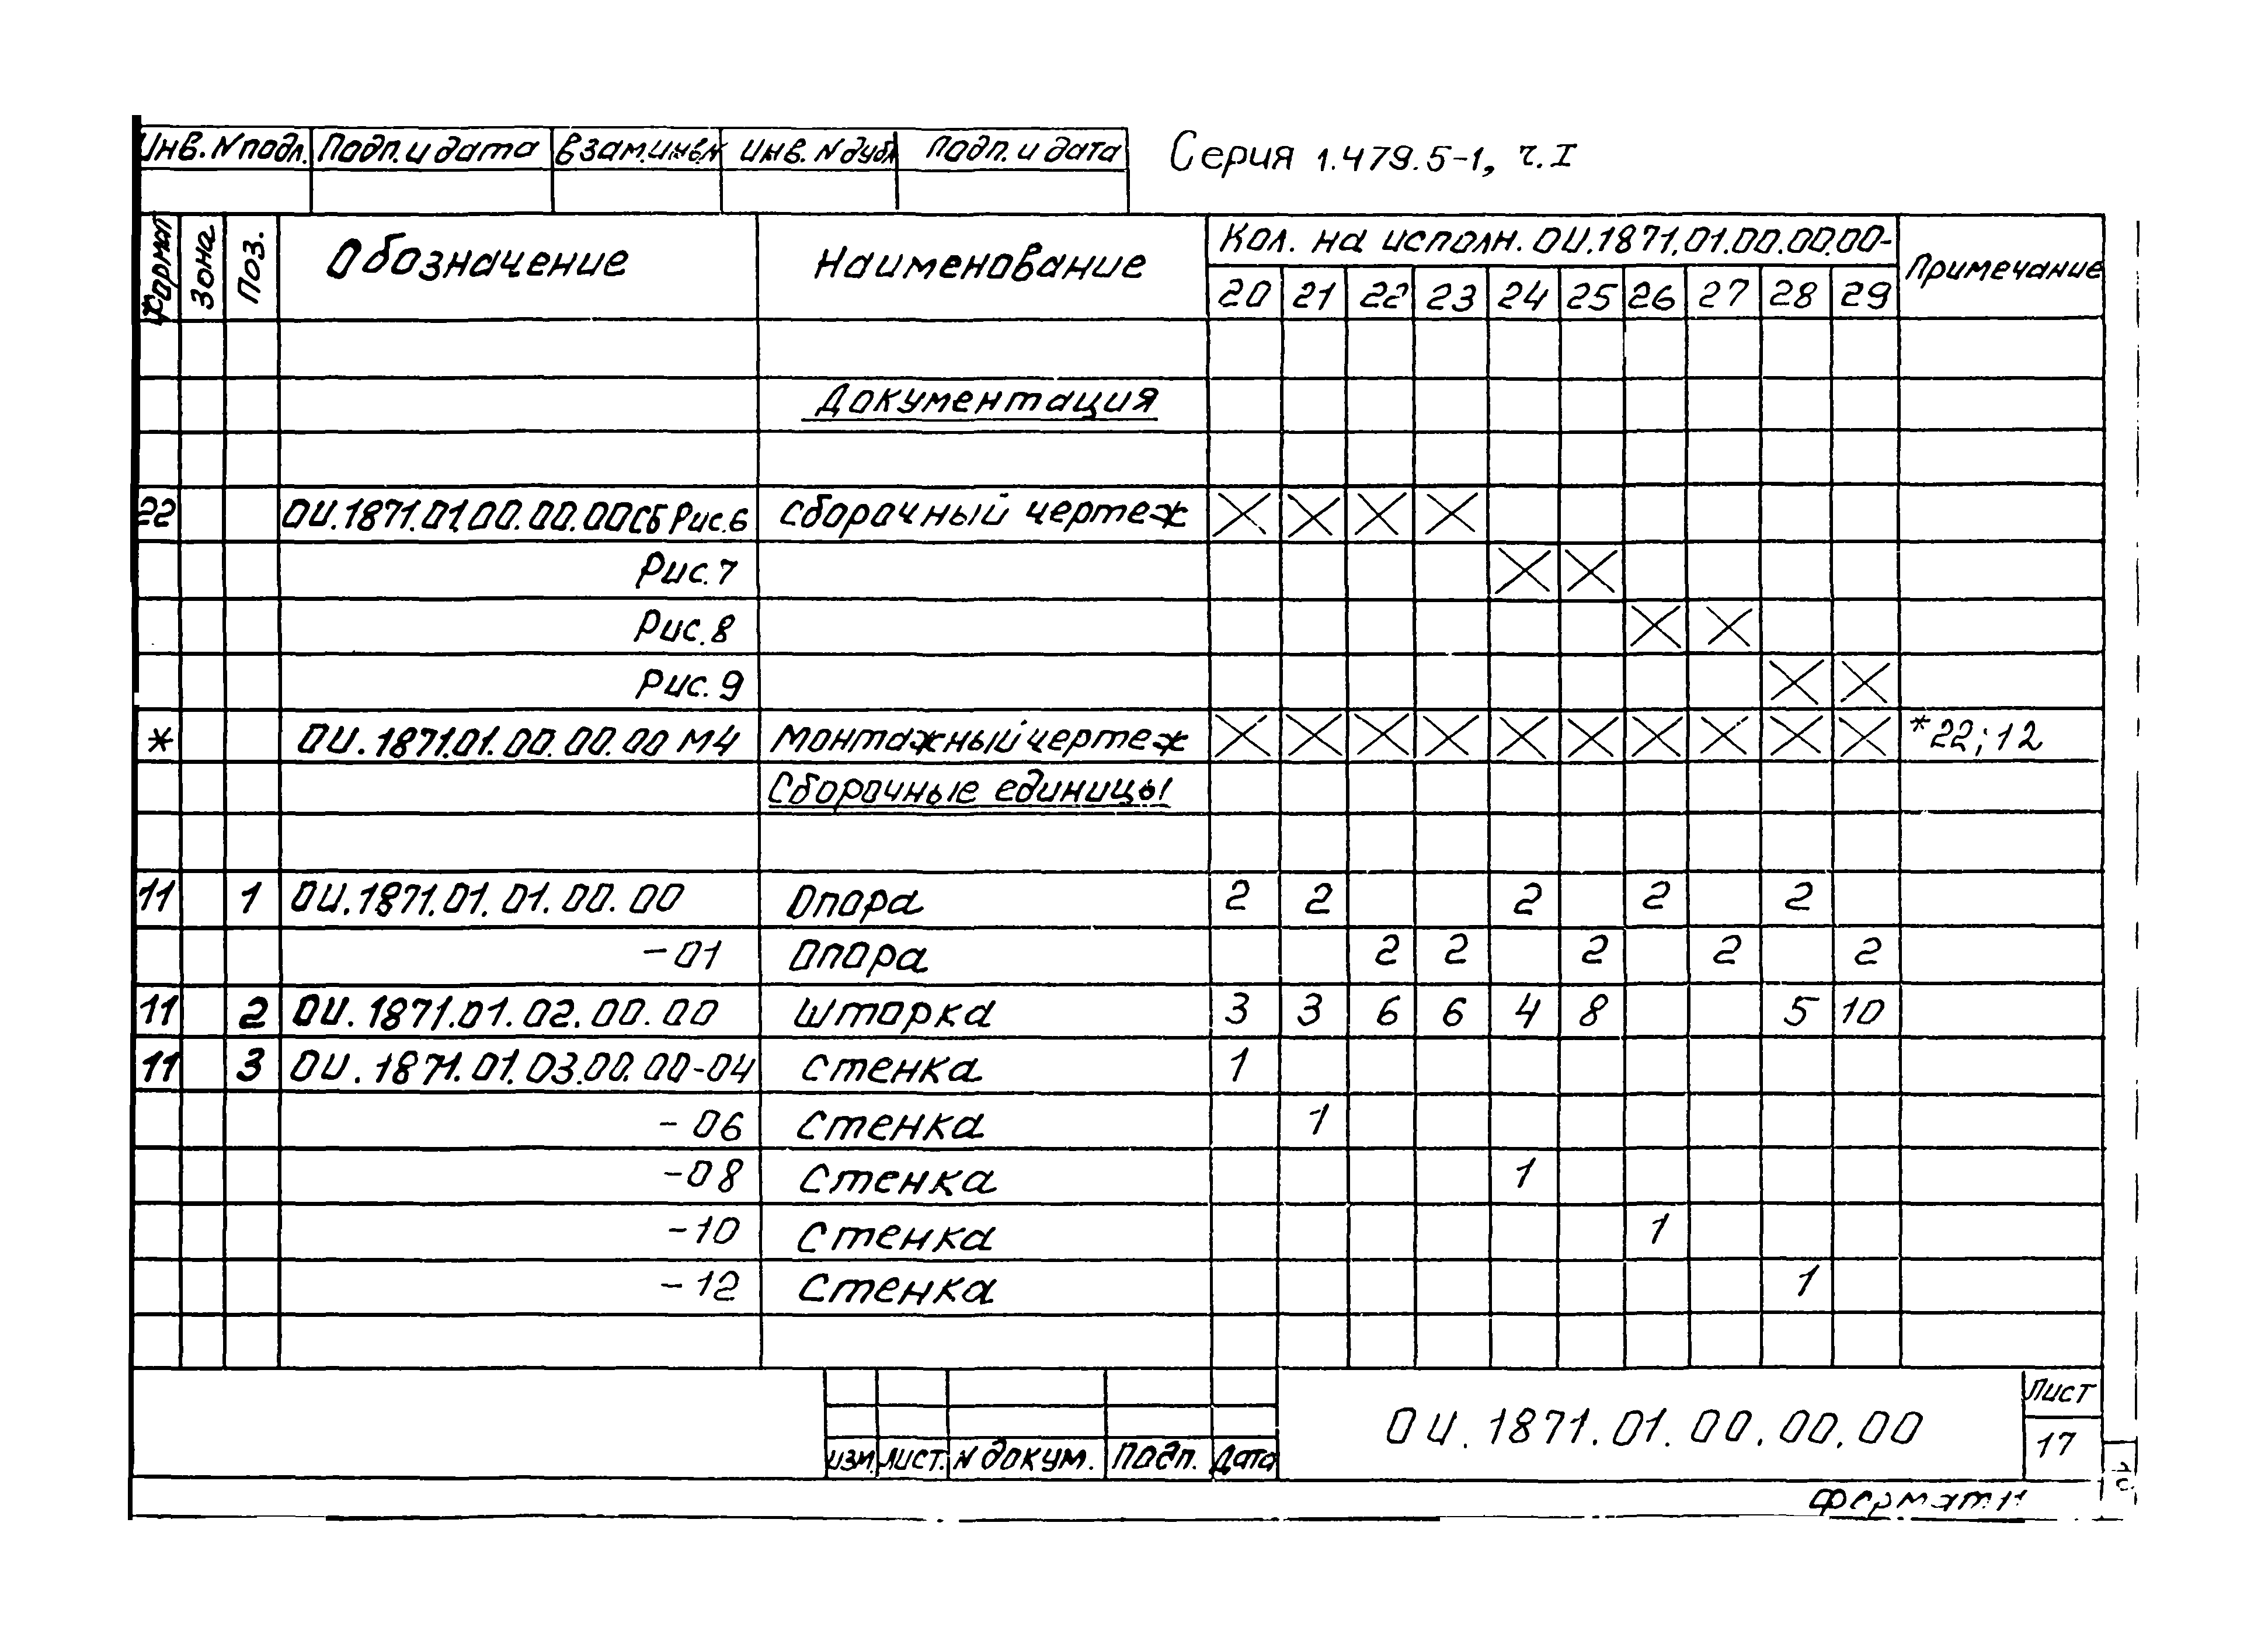 Инв. N подл. Подп. и дата Взам. инв. N Инв. N дубл Подп. и дата Серия 1.479.5-1, ч. I
Формат Зона Поз. Обозначение Наименование Кол. на исполн. ОИ.1871.01.00.00.00- Примечание
20 21 22 23 24 25 26 27 28 29
Документация
22 ОИ.1871.01.00.00.00СБ Рис.6 Сборочный чертеж
Рис.7
Рис.8
Рис.9
* ОИ.1871.01.00.00.00 МЧ Монтажный чертеж *22; 12
Сборочные единицы
11 1 ОИ.1871.01.01.00.00 Опора 2 2 2 2 2
-01 Опора 2 2 2 2 2
11 2 ОИ.1871.01.02.00.00 Шторка 3 3 6 6 4 8 5 10
11 3 ОИ.1871.01.03.00.00-04 Стенка 1
-06 Стенка 1
-08 Стенка 1
-10 Стенка 1
-12 Стенка 1
Изм. Лист. N докум. Подп. Дата ОИ.1871.01.00.00.00 Лист
17
Формат 11